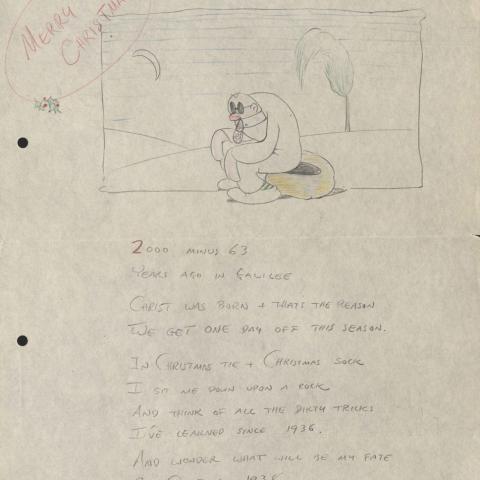 MERRY
CHRISTMA
2000 MINUS 63
YEARS AGO IN GALILEE
CHRIST WAS BORN + THATS THE REASON
WE GET ONE DAY OFF THIS SEASON.
IN CHRISTMAS TIE + CHRISTMAS SOCK
I SIT ME DOWN UPON A ROCK
AND THINK OF ALL THE DIRTY TRICKS
I'VE LEARNED SINCE 1936.
AND WONDER WHAT WILL BE MY FATE
1938